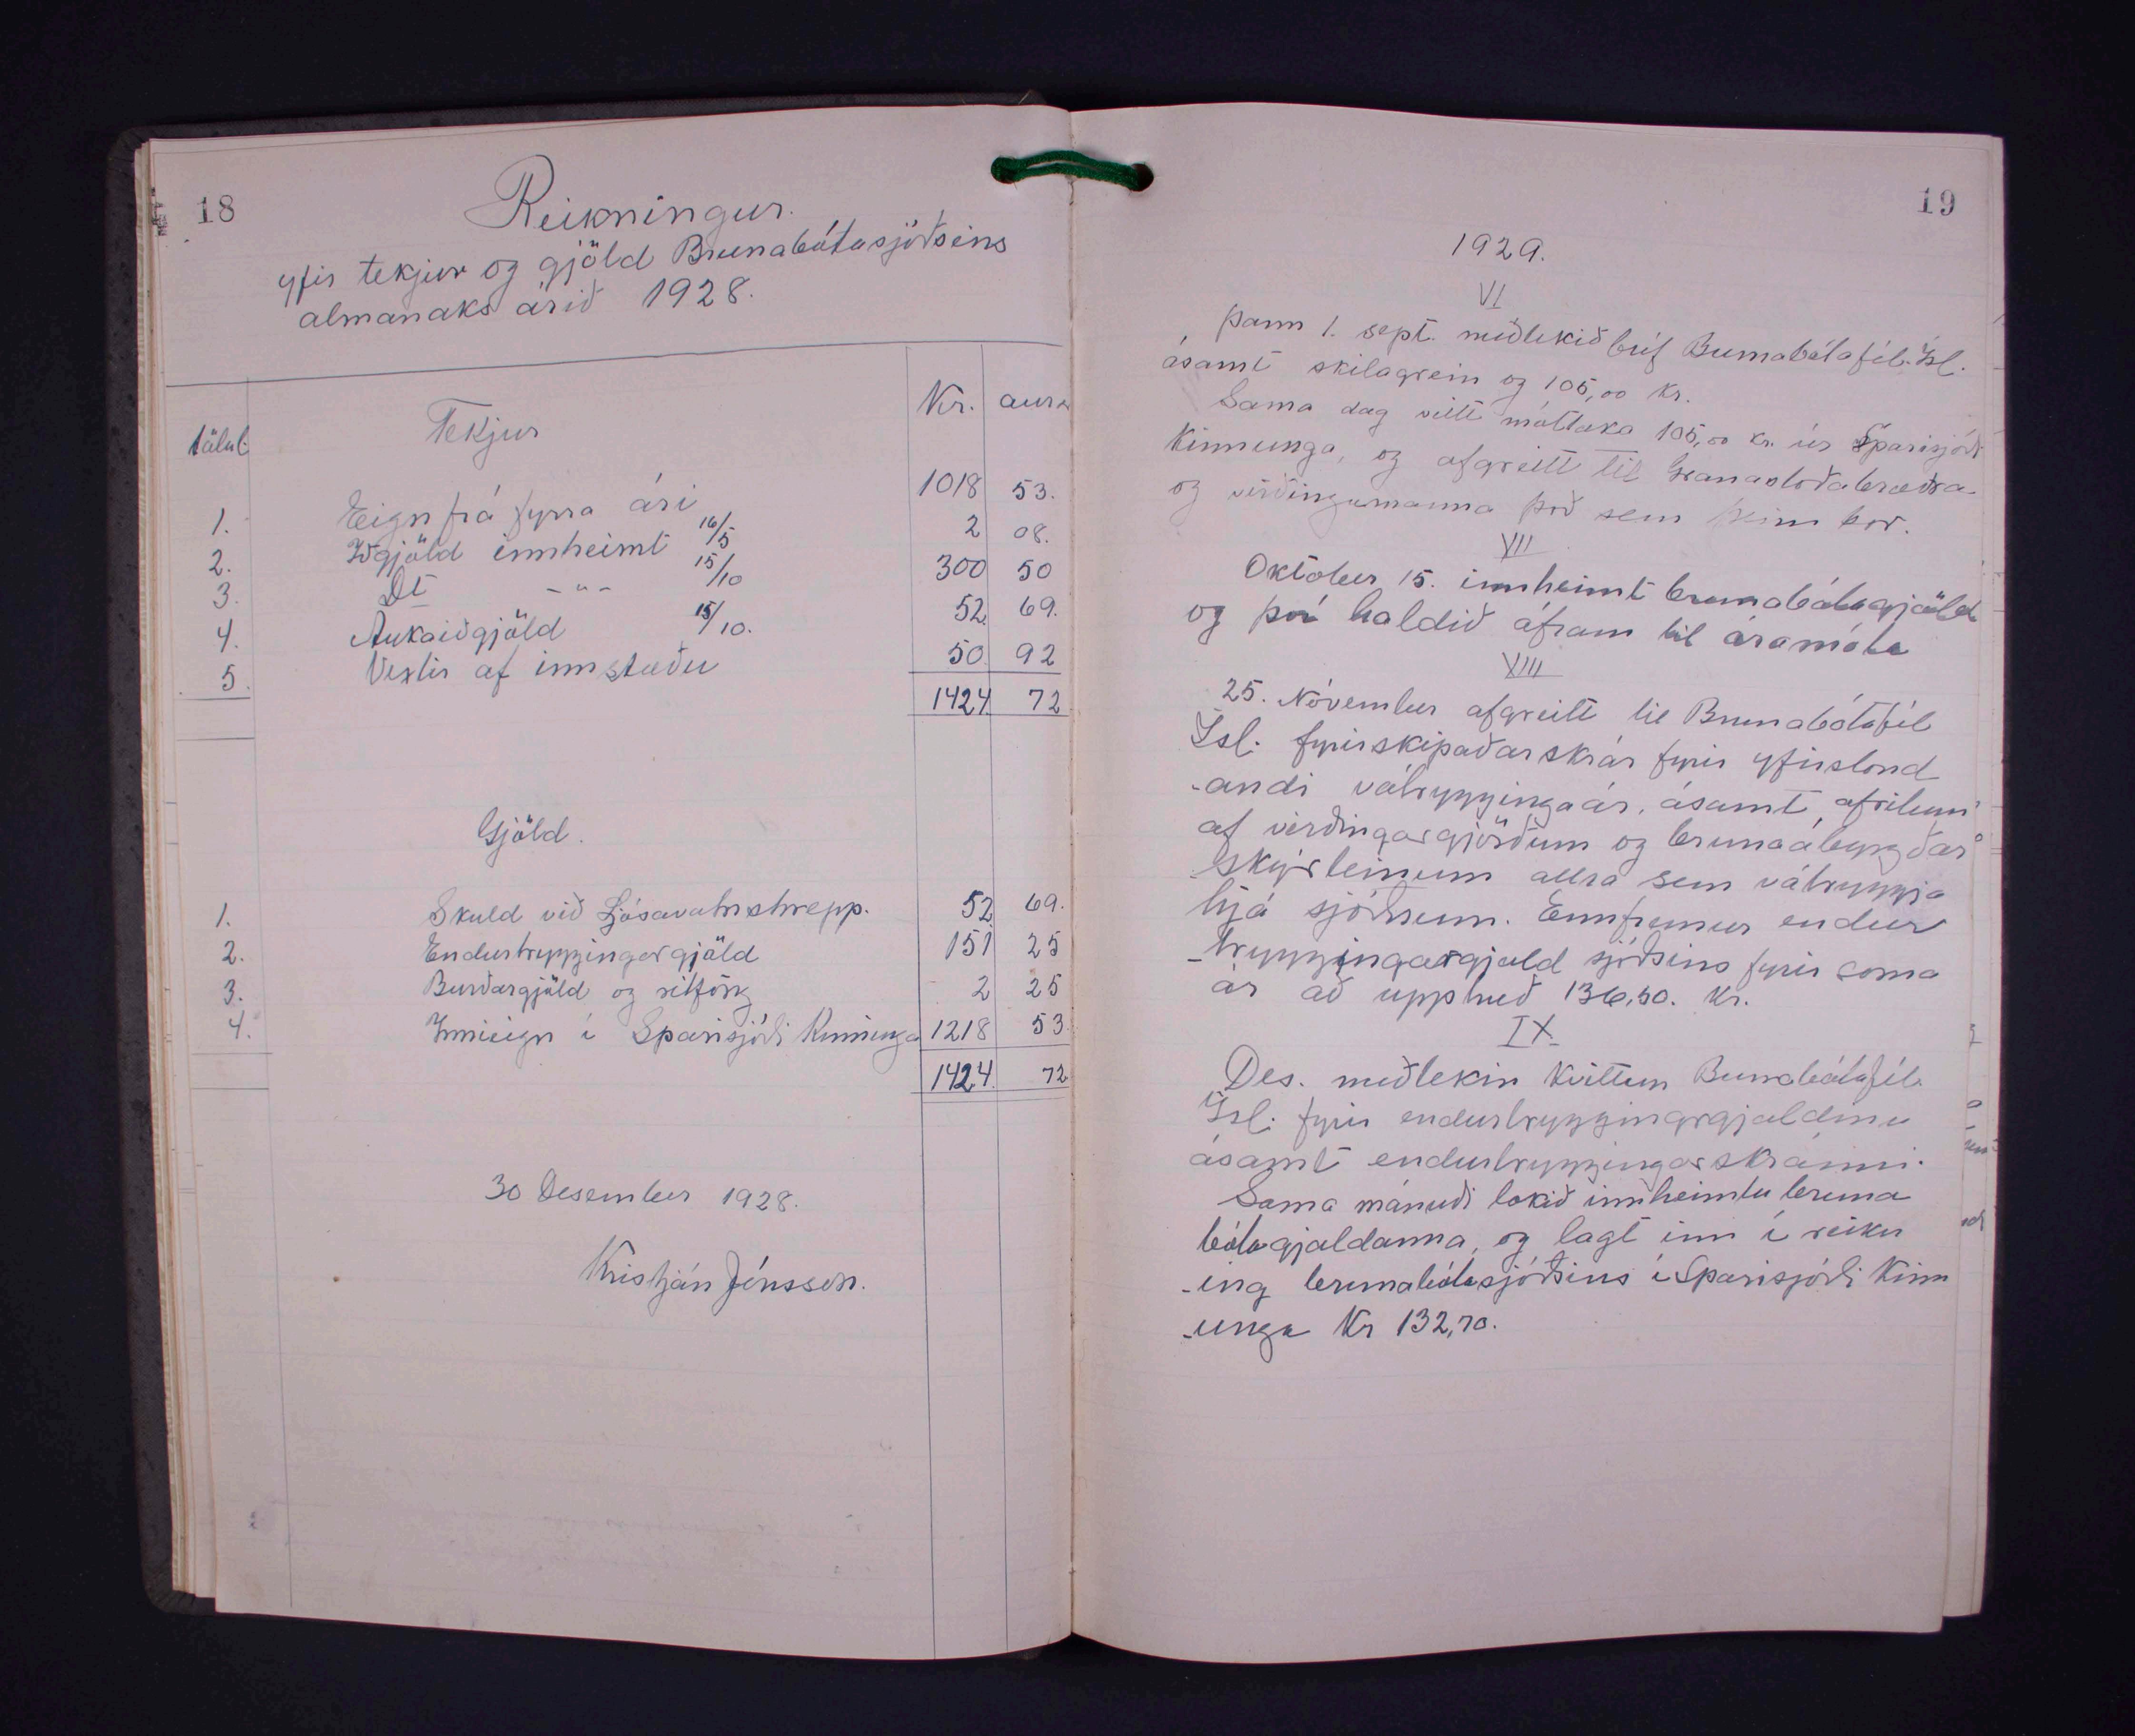 18
Reikningur.
yfir tekjur og gjöld Brunabótasjóðsins
almanaks árið 1928.
tölul. Tekjur Kr. aura
1. Eign frá fyrra ári 1018 53.
2. Iðgjöld innheimt 16/5 2 08.
3. Dt -"- 15/10 300 50
4. Aukaiðgjöld 15/10. 52 69.
5. Vextir af innstæðu 50 92
1424 72
Gjöld.
1. Skuld við Ljósavatnshrepp. 52 69.
2. Endurtryggingargjöld 151 25
3. Burðargjöld og ritföng 2 25
4. Innieign í Sparisjóði Kinnunga 1218 53
1424 72
30 Desember 1928.
Kristján Jónsson.
19
1929.
VI
Þann 1. sept. meðtekið bréf Brunabótafél. Ísl.
ásamt skilagrein og 105,00 kr.
Sama dag veitt móttaka 105,00 kr. úr Sparisjóði
Kinnunga, og afgreitt til
og virðingamanna það sem þeim bar.
VII
Oktober 15. innheimt brunabótagjöld
og því haldið áfram til áramóta
XIII
25. Nóvember afgreitt til Brunabótafél
Ísl. fyrirskipaðar skrár fyrir yfirstand
-andi vátryggingaár, ásamt, afritum
af virðingargjörðum og brunaábyrgðar
skýrteinum allra sem vátryggja
hjá sjóðnum. Ennfremur endur
-tryggingargjald sjóðsins fyrir sama
ár að upphæð 136,50. kr.
IX
Des. meðtekin kvittun Brunabótafél.
Ísl. fyrir endurtryggingargjaldinu
ásamt endurtryggingarskránni.
Sama mánuði lokið innheimtu bruna
bótagjaldanna, og lagt inn í reikn
-ing brunabótasjóðsins í Sparisjóði Kinn
-unga Kr 132,70.